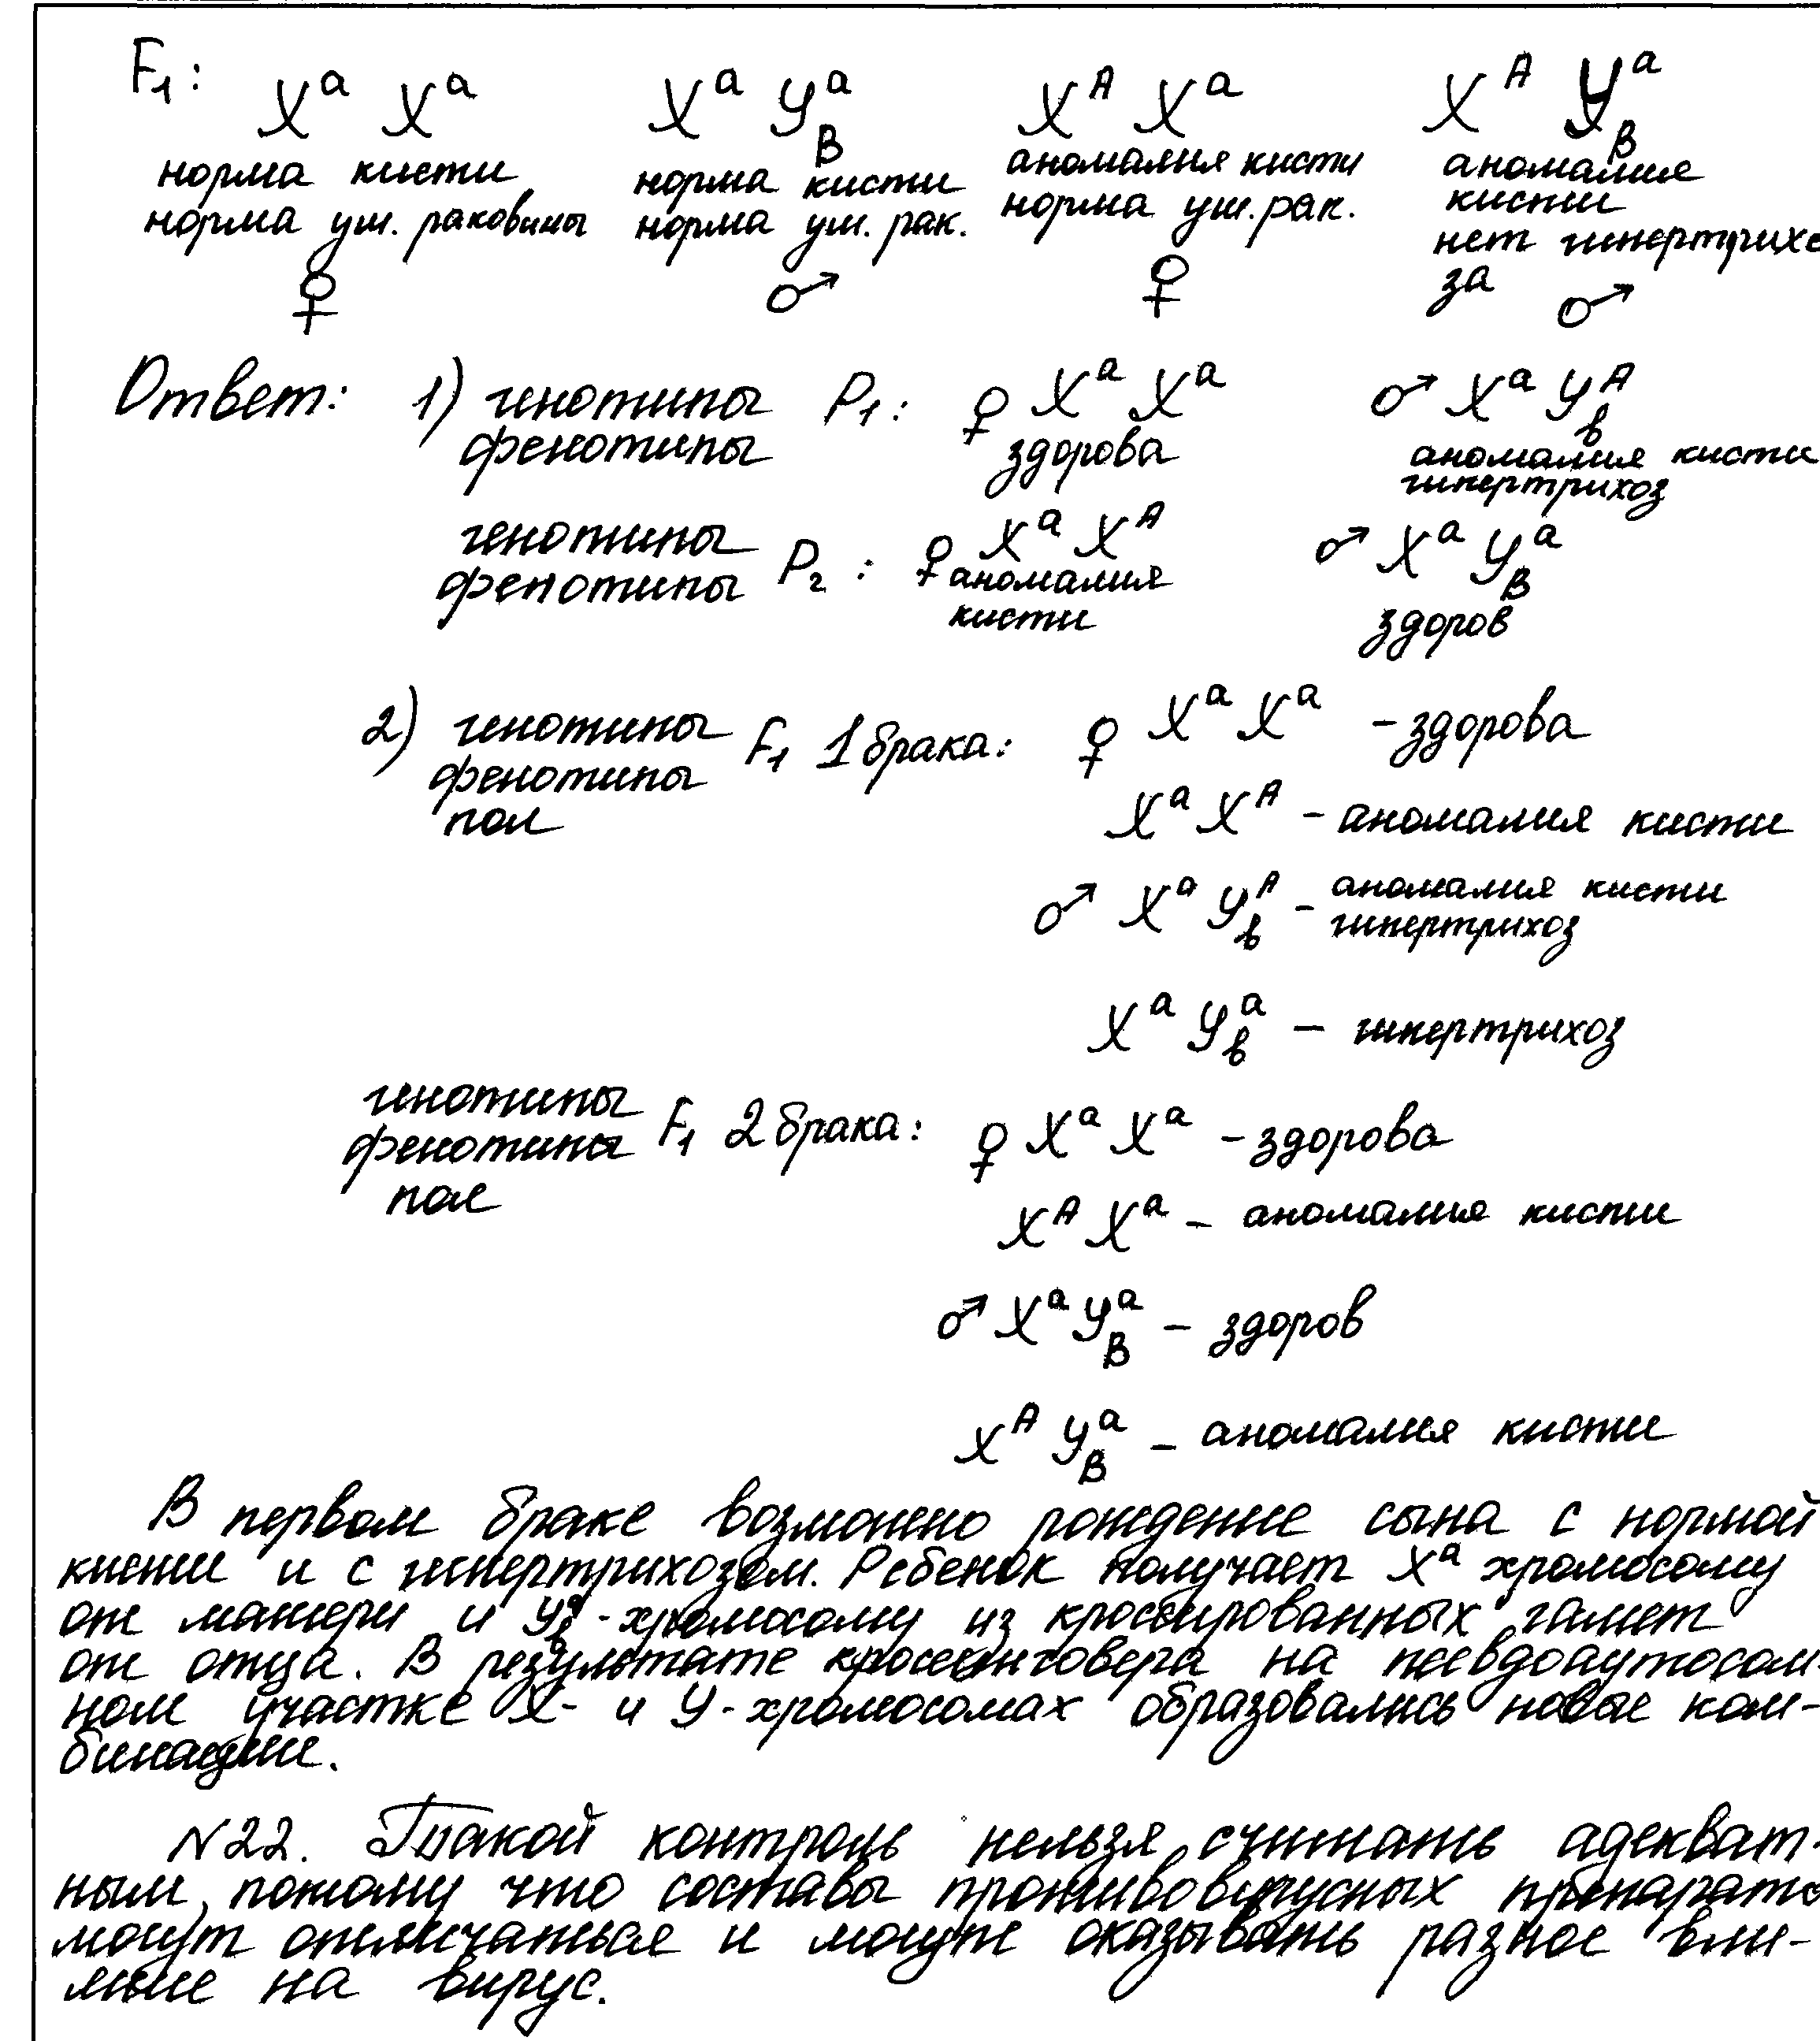 F₁: XᵃXᵃ XᵃУᵃ_B XᴬXᵃ XᴬУᵃ_B
норма кисти норма кисти аномалия кисти аномалия
норма уш. раковины норма уш. рак. норма уш. рак. кисти
нет гипертрихо
за
♀ ♂ ♀ ♂
Ответ: 1) генотипы P₁: ♀ XᵃXᵃ ♂ XᵃУᴬ_b
фенотипы здорова аномалия кисти
гипертрихоз
генотипы P₂: ♀ XᵃXᴬ ♂ XᵃУᵃ_B
фенотипы аномалия
кисти здоров
2) генотипы F₁ 1 брака: ♀ XᵃXᵃ - здорова
фенотипы
пол XᵃXᴬ - аномалия кисти
♂ XᵃУᴬ_b - аномалия кисти
гипертрихоз
XᵃУᵃ_b - гипертрихоз
генотипы
фенотипы F₁ 2 брака: ♀ XᵃXᵃ - здорова
пол
XᴬXᵃ - аномалия кисти
♂ XᵃУᵃ_B - здоров
XᴬУᵃ_B - аномалия кисти
В первом браке возможно рождение сына с нормой
кисти и с гипертрихозом. Ребенок получает Xᵃ хромосому
от матери и Уᵃ_b-хромосому из кроссированных гамет
от отца. В результате кроссинговера на псевдоаутосом-
ном участке X- и У-хромосомах образовались новые ком-
бинации.
N22. Такой контроль нельзя считать адекват-
ным, потому что составы противовирусных препарато
могут отличаться и могут оказывать разное вли-
яние на вирус.